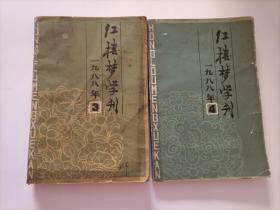 红楼梦学刊
一九八八年
3
HONGLOUMENGXUEKAN
红楼梦学刊
一九八八年
4
HONGLOUMENGXUEKAN